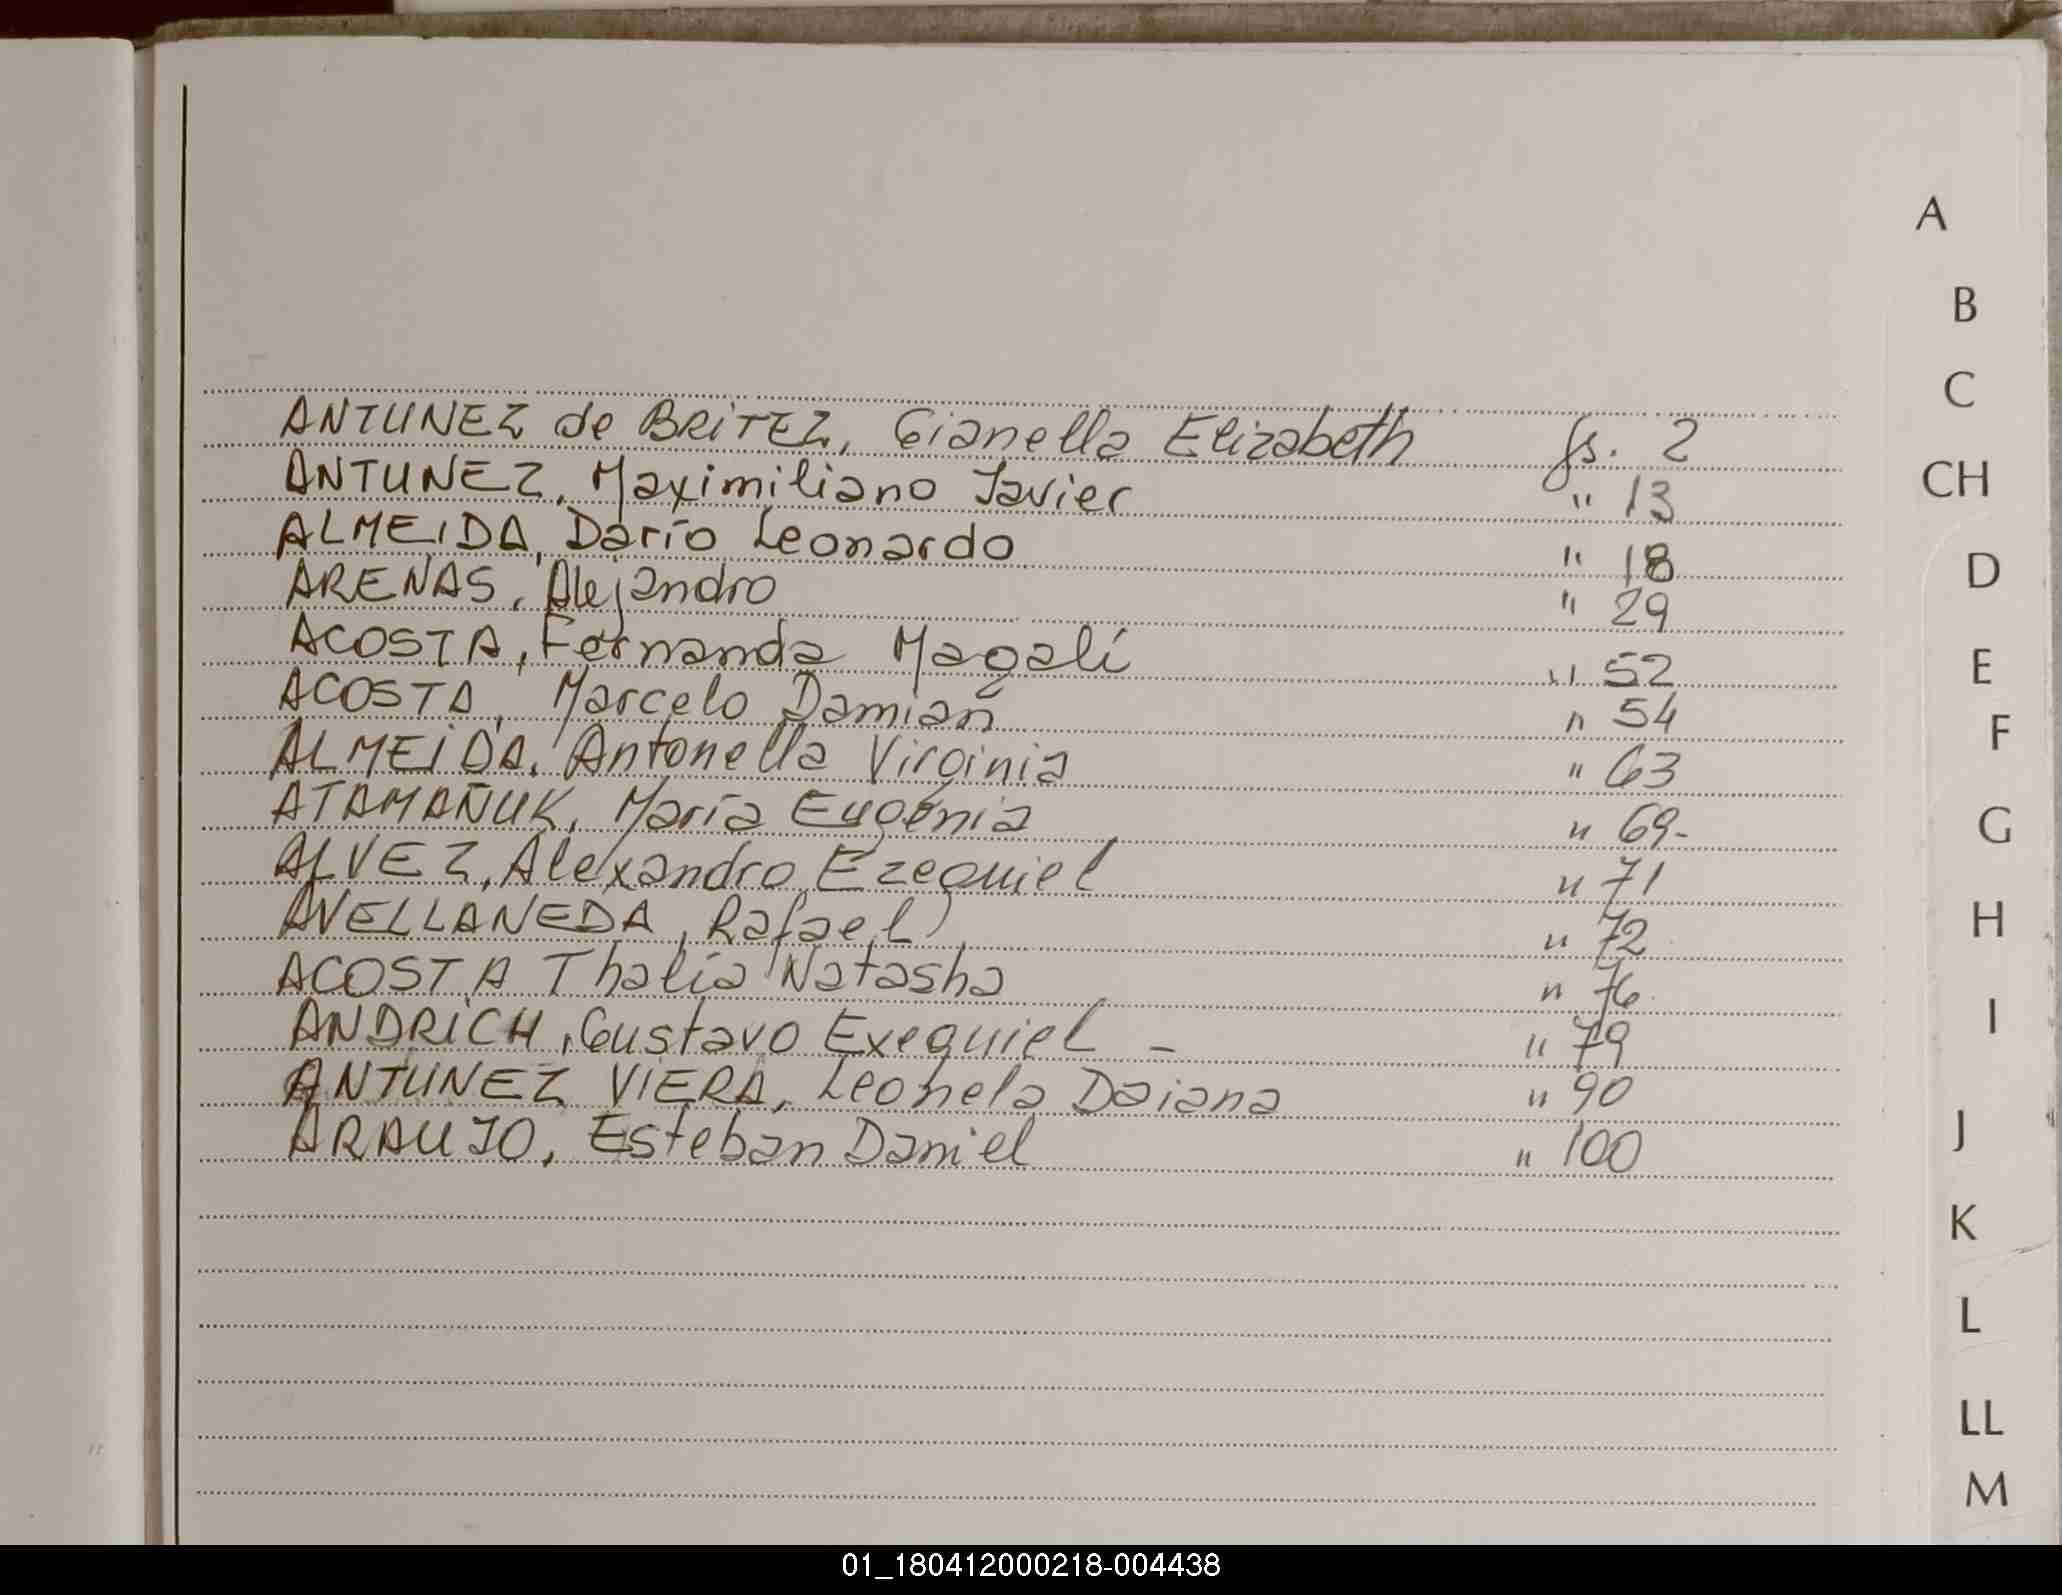 ANTUNEZ de BRITEZ, Gianella Elizabeth fs. 2
ANTUNEZ, Maximiliano Javier " 13
ALMEIDA, Darío Leonardo " 18
ARENAS, Alejandro " 29
ACOSTA, Fernanda Magalí " 52
ACOSTA, Marcelo Damián " 54
ALMEIDA, Antonella Virginia " 63
ATAMAÑUK, María Eugenia " 69-
ALVEZ, Alexandro Ezequiel " 71
AVELLANEDA, Rafael " 72
ACOSTA Thalía Natasha " 76
ANDRICH, Gustavo Exequiel - " 79
ANTUNEZ VIERA, Leonela Daiana " 90
ARAUJO, Esteban Daniel " 100
A
B
C
CH
D
E
F
G
H
I
J
K
L
LL
M
01_180412000218-004438